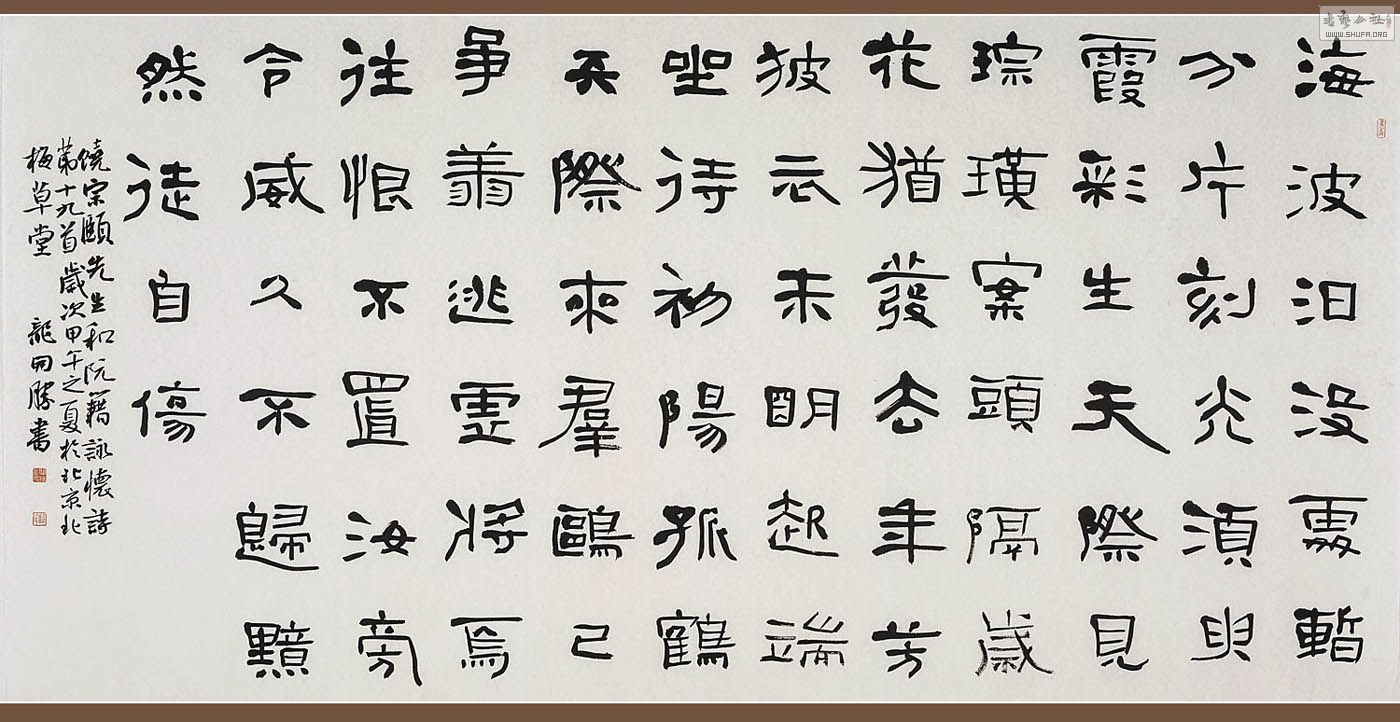 海波汩没處暫
分片刻光須臾
霞彩生天際見
琮璜案頭隔歲
花猶發去年芳
披衣未明起端
坐待初陽孤鶴
天際來羣鷗已
爭翔逃虚將焉
往恨不置汝旁
令威久不歸黯
然徒自傷
饒宗頤先生和阮籍詠懷詩
第十九首歲次甲午之夏於北京北
梅草堂 龍開勝書
書藝公社
WWW.SHUFA.ORG